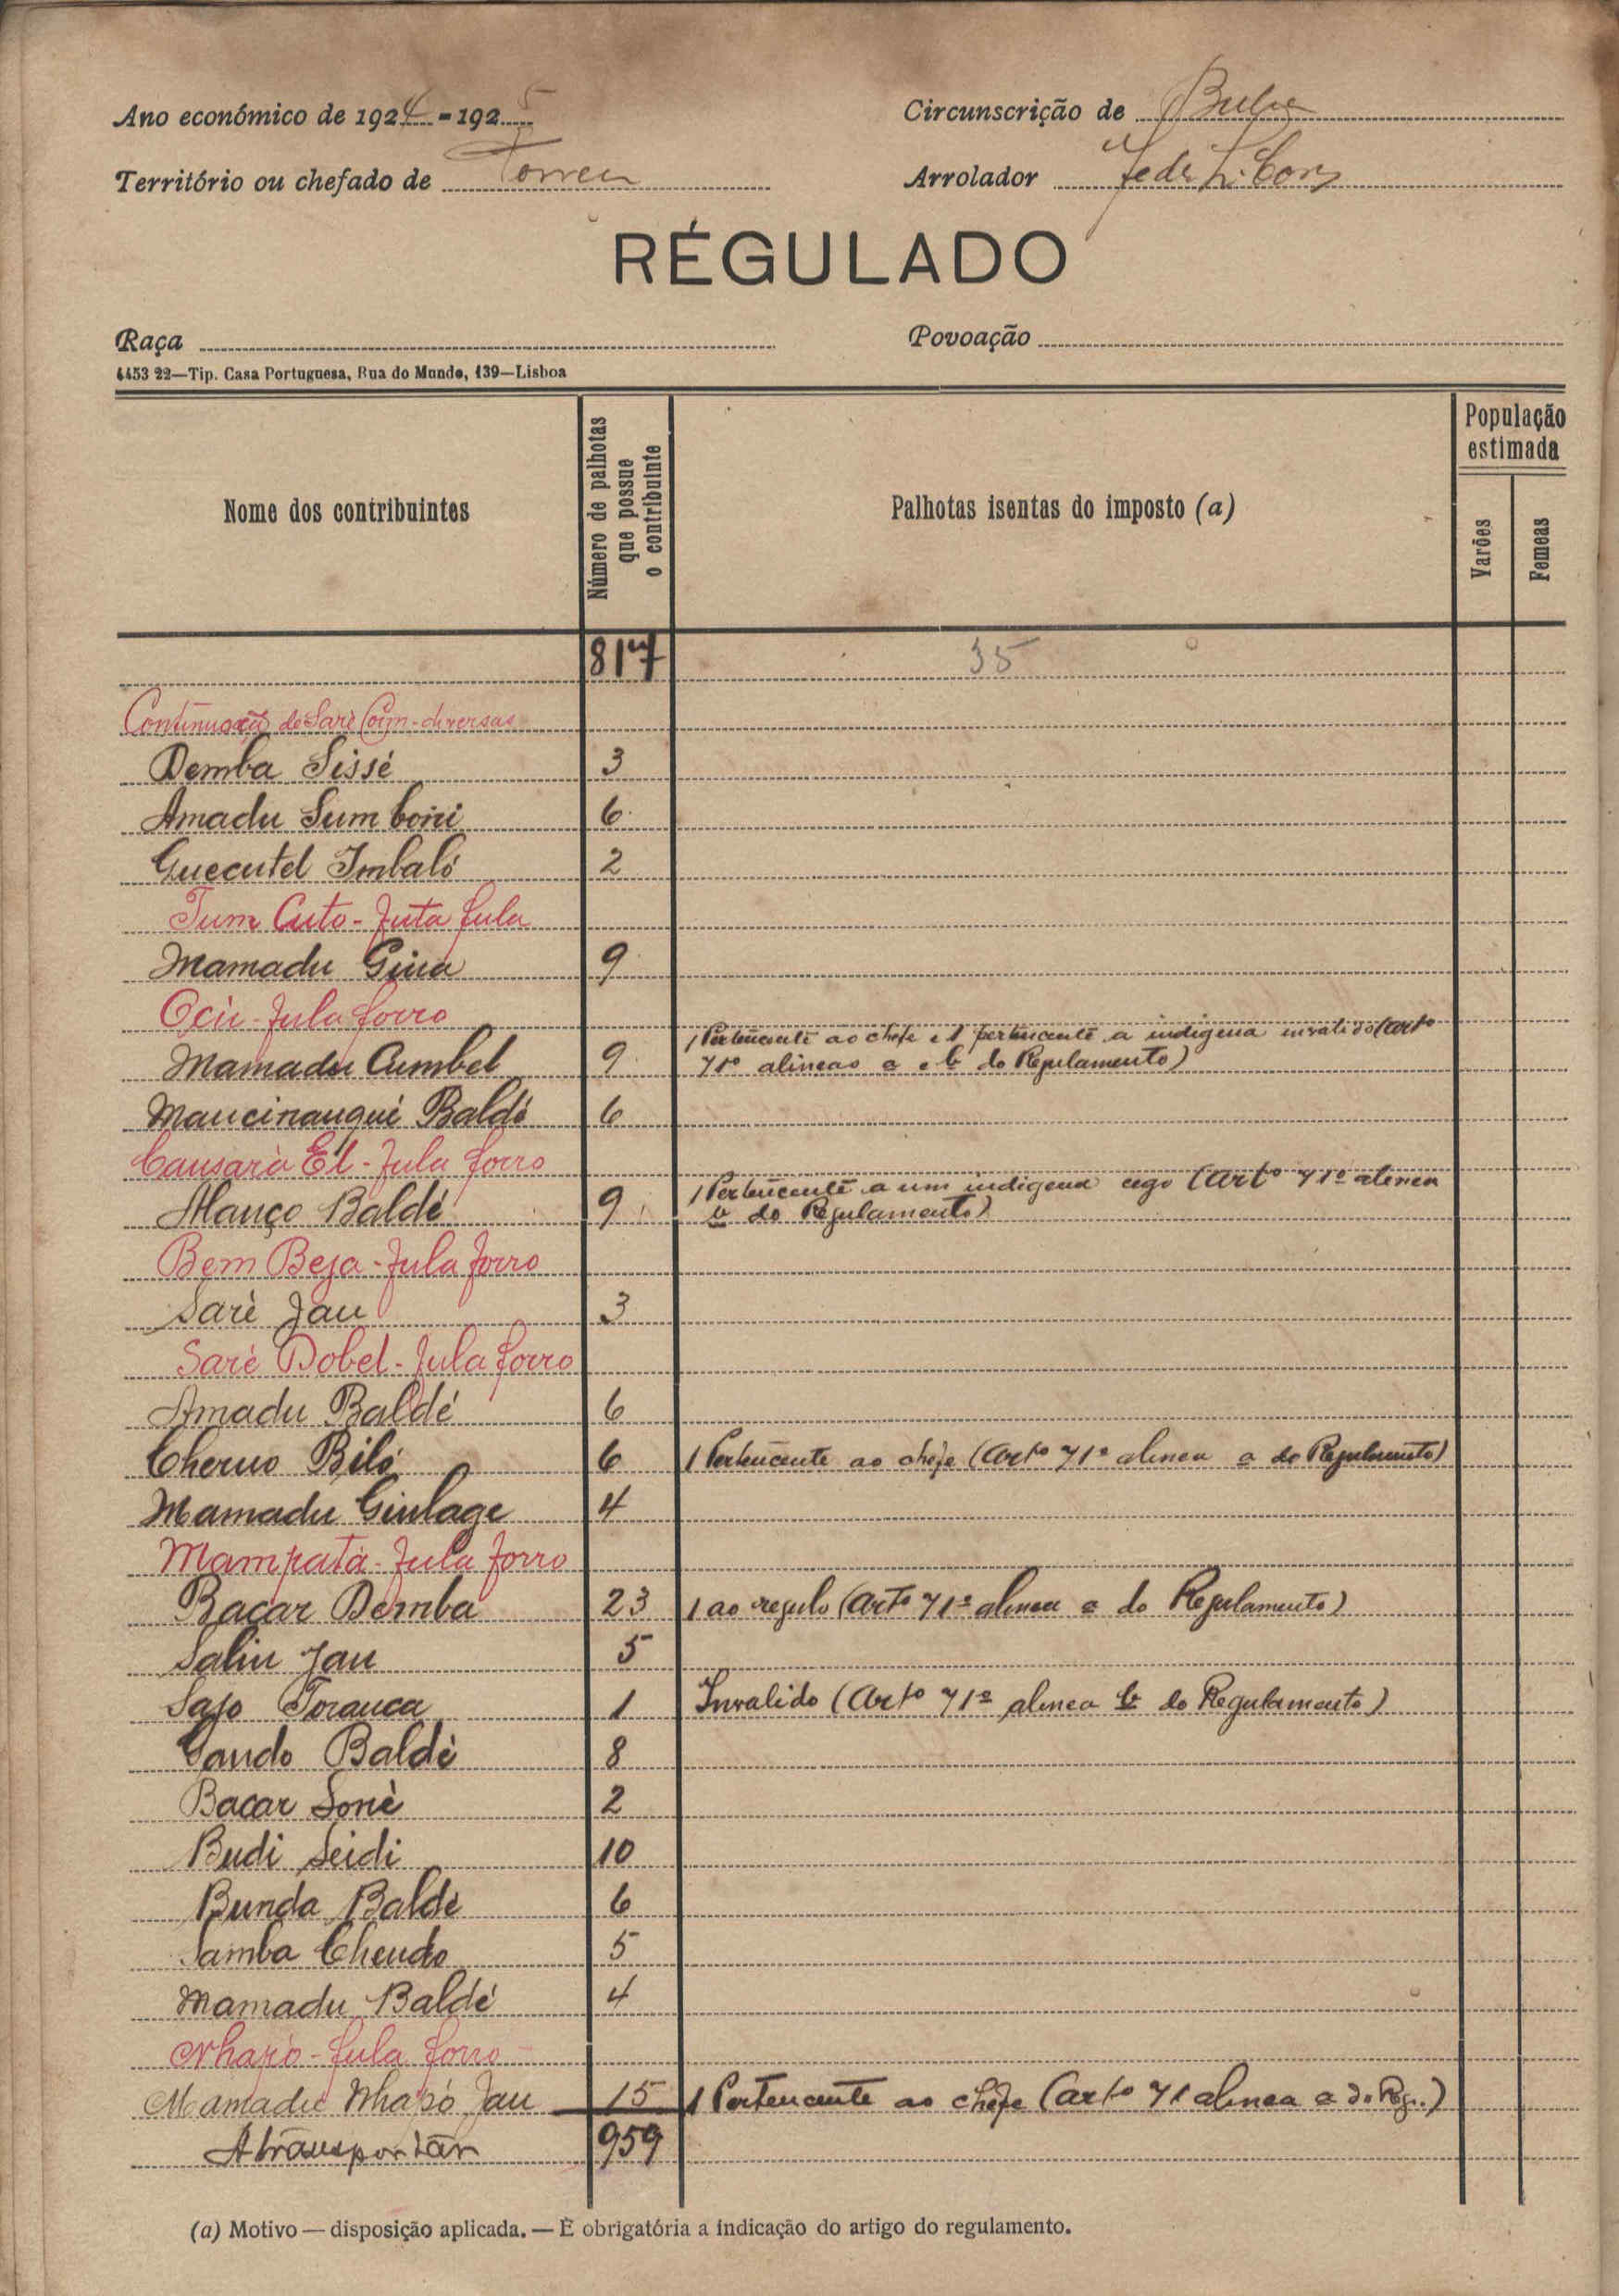 Ano económico de 1924-1925
Circunscrição de
Território ou chefado de
Arrolador
RÉGULADO
Raça
Povoação
4453 22—Tip. Casa Portuguesa, Rua do Mundo, 139—Lisboa
Nome dos contribuintes
Número de palhotas que possue o contribuinte
Palhotas isentas do imposto (a)
População estimada
Varões
Femeas
817 35
Continuoxã de Sarè - diversas
Demba Sissé 3
Amadu Sum 6
Guecutel Imbaló 2
Tum Cuto - Futa fula
Mamadu 9
Fula forro
1 Pertencente ao chefe e 1 pertencente a indigena invalido (Artº
Mamadu Cumbel 9 71º alineas a e b do Regulamento)
Baldé 6
Causarà El - Fula forro
1 Pertencente a um indigena cego (Artº 71º alinea
Baldé 9 b do Regulamento)
Bem Beja - Fula forro
Sarè Jau 3
Sarè Dobel - Fula forro
Amadu Baldé 6
Cherno Biló 6 1 Pertencente ao chefe (Artº 71º alinea a do Regulamento)
Mamadu 4
Mampatà - Fula forro
Bacar Demba 23 1 ao regulo (Artº 71º alinea a do Regulamento)
Saliu Jau 5
1 Invalido (Artº 71º alinea b do Regulamento)
Baldè 8
Bacar Sonè 2
Budi Seidi 10
Bunda Baldè 6
Samba Cheudo 5
Mamadu Baldé 4
Fula forro
Mamadu Jau 15 1 Pertencente ao chefe (Artº 71 alinea a do Reg.)
A transportar 959
(a) Motivo — disposição aplicada. — È obrigatória a indicação do artigo do regulamento.